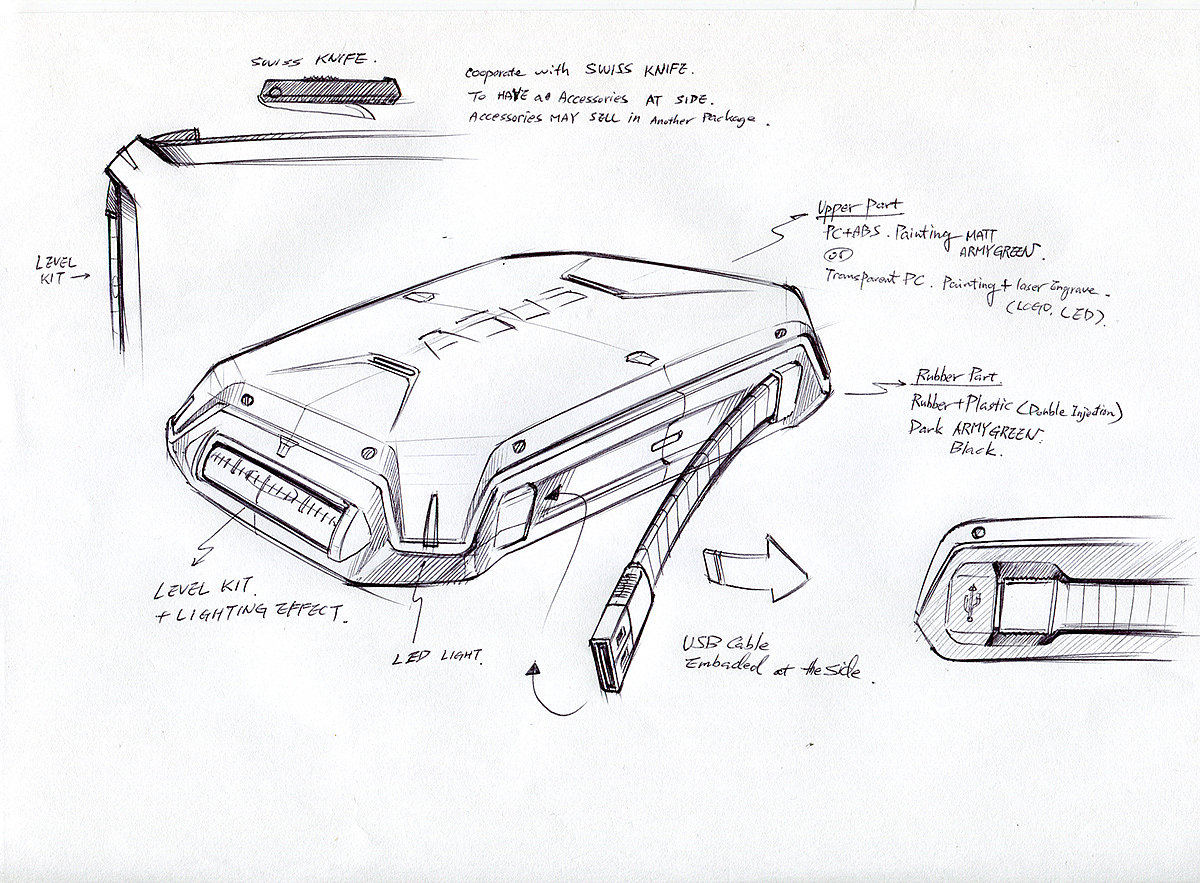 SWISS KNIFE.
Cooporate with SWISS KNIFE.
To HAVE Accessories AT SIDE.
Accessories MAY SELL in Another Package.
LEVEL
KIT →
Upper Part
PC+ABS. Painting MATT
ARMYGREEN.
or
Transparent PC. Painting + laser Engrave.
(LOGO, LED).
Rubber Part
Rubber+Plastic (Double Injection)
Dark ARMYGREEN.
Black.
LEVEL KIT.
+ LIGHTING EFFECT.
LED LIGHT.
USB Cable
Embaded at the Side.